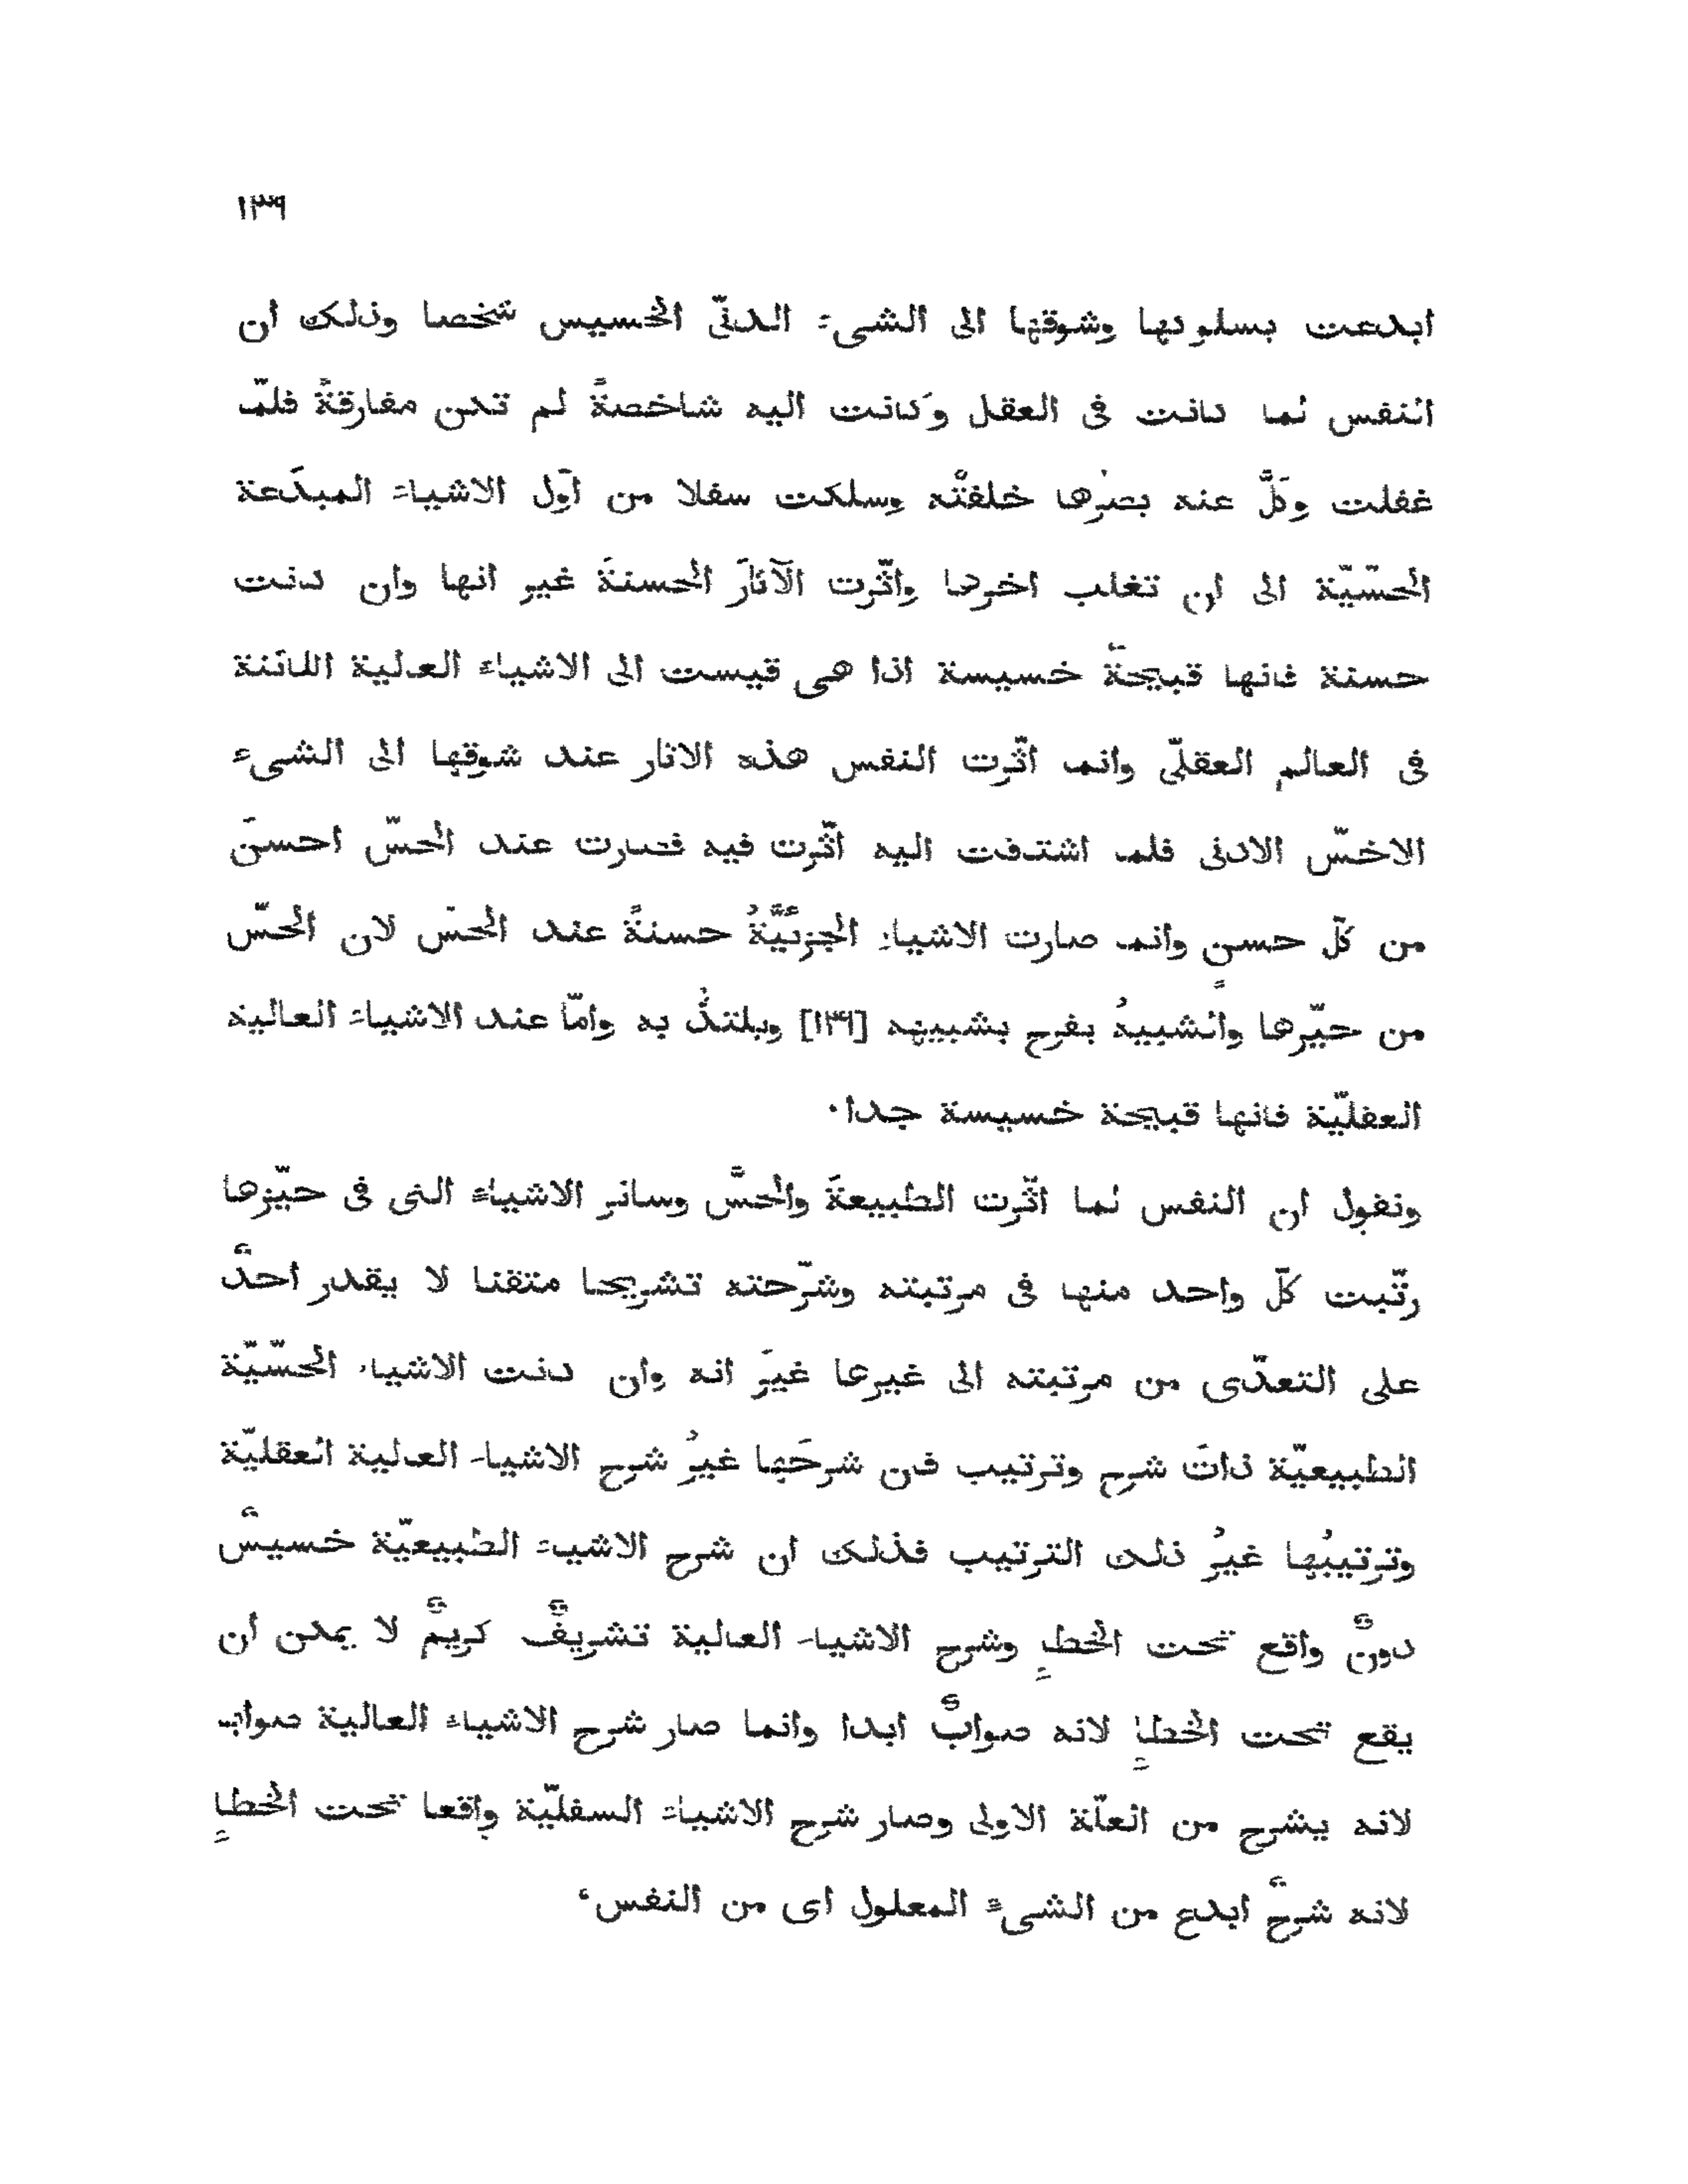 ١٣٩
ابدعت بسلوكها وشوقها الى الشىء الدنّى الخسيس شخصا وذلك ان
النفس لما كانت فى العقل وكانت اليه شاخصةً لم تكن مفارقةً فلمّا
غفلت وكَلَّ عنه بصرُها خلفتْه وسلكت سفلا من اوّل الاشياء المبدَعة
الحسّيّة الى ان تغلب اخرها واثّرت الآثارَ الحسنةَ غير انها وان كانت
حسنة فانها قبيحةٌ خسيسة اذا هى قيست الى الاشياء العالية الكائنة
فى العالم العقلّى وانما اثّرت النفس هذه الاثار عند شوقها الى الشىء
الاخسّ الادنى فلما اشتاقت اليه اثّرت فيه فصارت عند الحسّ احسنَ
من كلّ حسنٍ وانما صارت الاشياء الجزئيَّةُ حسنةً عند الحسّ لان الحسّ
من حيّزها والشبيهُ يفرح بشبيهه [١٣٩] ويلتذُّ به وامّا عند الاشياء العالية
العقليّة فانها قبيحة خسيسة جدا٠
ونقول ان النفس لما اثّرت الطبيعةَ والحسَّ وسائر الاشياء التى فى حيّزها
رتّبت كلّ واحد منها فى مرتبته وشرّحته تشريحا متقنا لا يقدر احدٌ
على التعدّى من مرتبته الى غيرها غيرَ انه وان كانت الاشياء الحسّيّة
الطبيعيّة ذاتَ شرح وترتيب فان شرحَها غيرُ شرح الاشياء العالية العقليّة
وترتيبُها غيرُ ذلك الترتيب فذلك ان شرح الاشياء الطبيعيّة خسيسٌ
دونٌ واقع تحت الخطاءِ وشرح الاشياء العالية تشريفٌ كريمٌ لا يمكن ان
يقع تحت الخطاءِ لانه صوابٌ ابدا وانما صار شرح الاشياء العالية صوابا
لانه يشرح من العلّة الاولى وصار شرح الاشياء السفليّة واقعا تحت الخطاءِ
لانه شرحٌ ابدع من الشىء المعلول اى من النفس٠